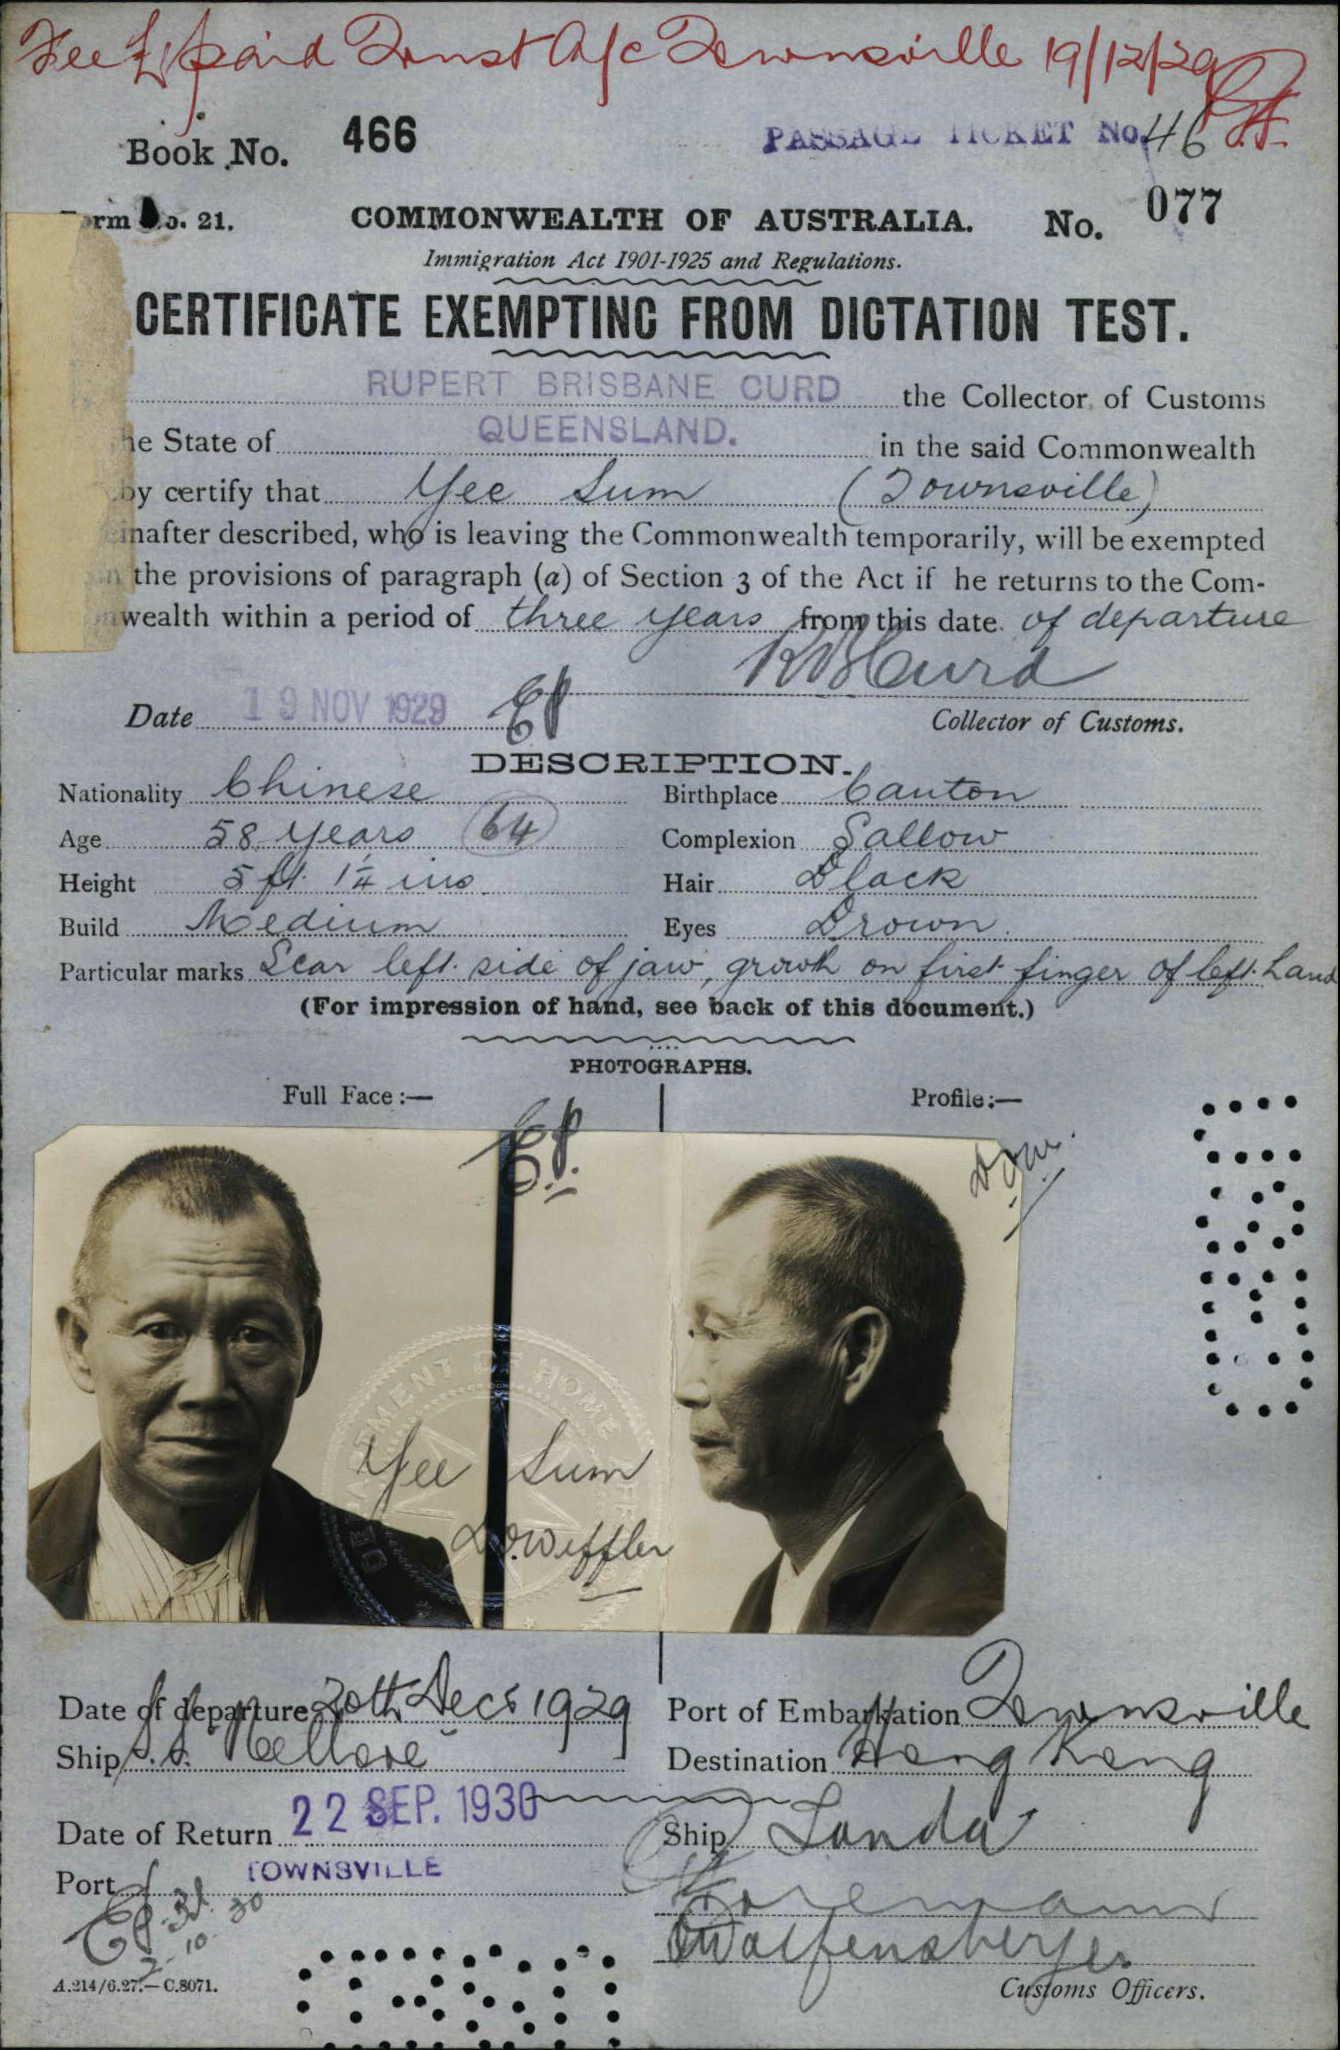 Fee £1 paid Trust A/c Townsville 19/12/29
Book No. 466
PASSAGE TICKET No. 46
Form No. 21.
COMMONWEALTH OF AUSTRALIA. No. 077
Immigration Act 1901-1925 and Regulations.
CERTIFICATE EXEMPTING FROM DICTATION TEST.
RUPERT BRISBANE CURD the Collector of Customs
he State of QUEENSLAND. in the said Commonwealth
by certify that Yee Sum (Townsville)
einafter described, who is leaving the Commonwealth temporarily, will be exempted
the provisions of paragraph (a) of Section 3 of the Act if he returns to the Com-
wealth within a period of three years from this date of departure
R B Curd
Date 19 NOV 1929 Collector of Customs.
DESCRIPTION.
Nationality Chinese Birthplace Canton
Age 58 years 64 Complexion Sallow
Height 5 ft 1¼ ins Hair Black
Build Medium Eyes Brown
Particular marks Scar left side of jaw, growth on first finger of left hand
(For impression of hand, see back of this document.)
PHOTOGRAPHS.
Full Face:— Profile:—
DEPARTMENT OF HOME
Yee Sum
Date of departure 20th Decr 1929 Port of Embarkation Townsville
Ship S.S. "Nellore" Destination Hong Kong
Date of Return 22 SEP. 1930 Ship Tanda
Port TOWNSVILLE
Customs Officers.
A.214/6.27.—C.8071.